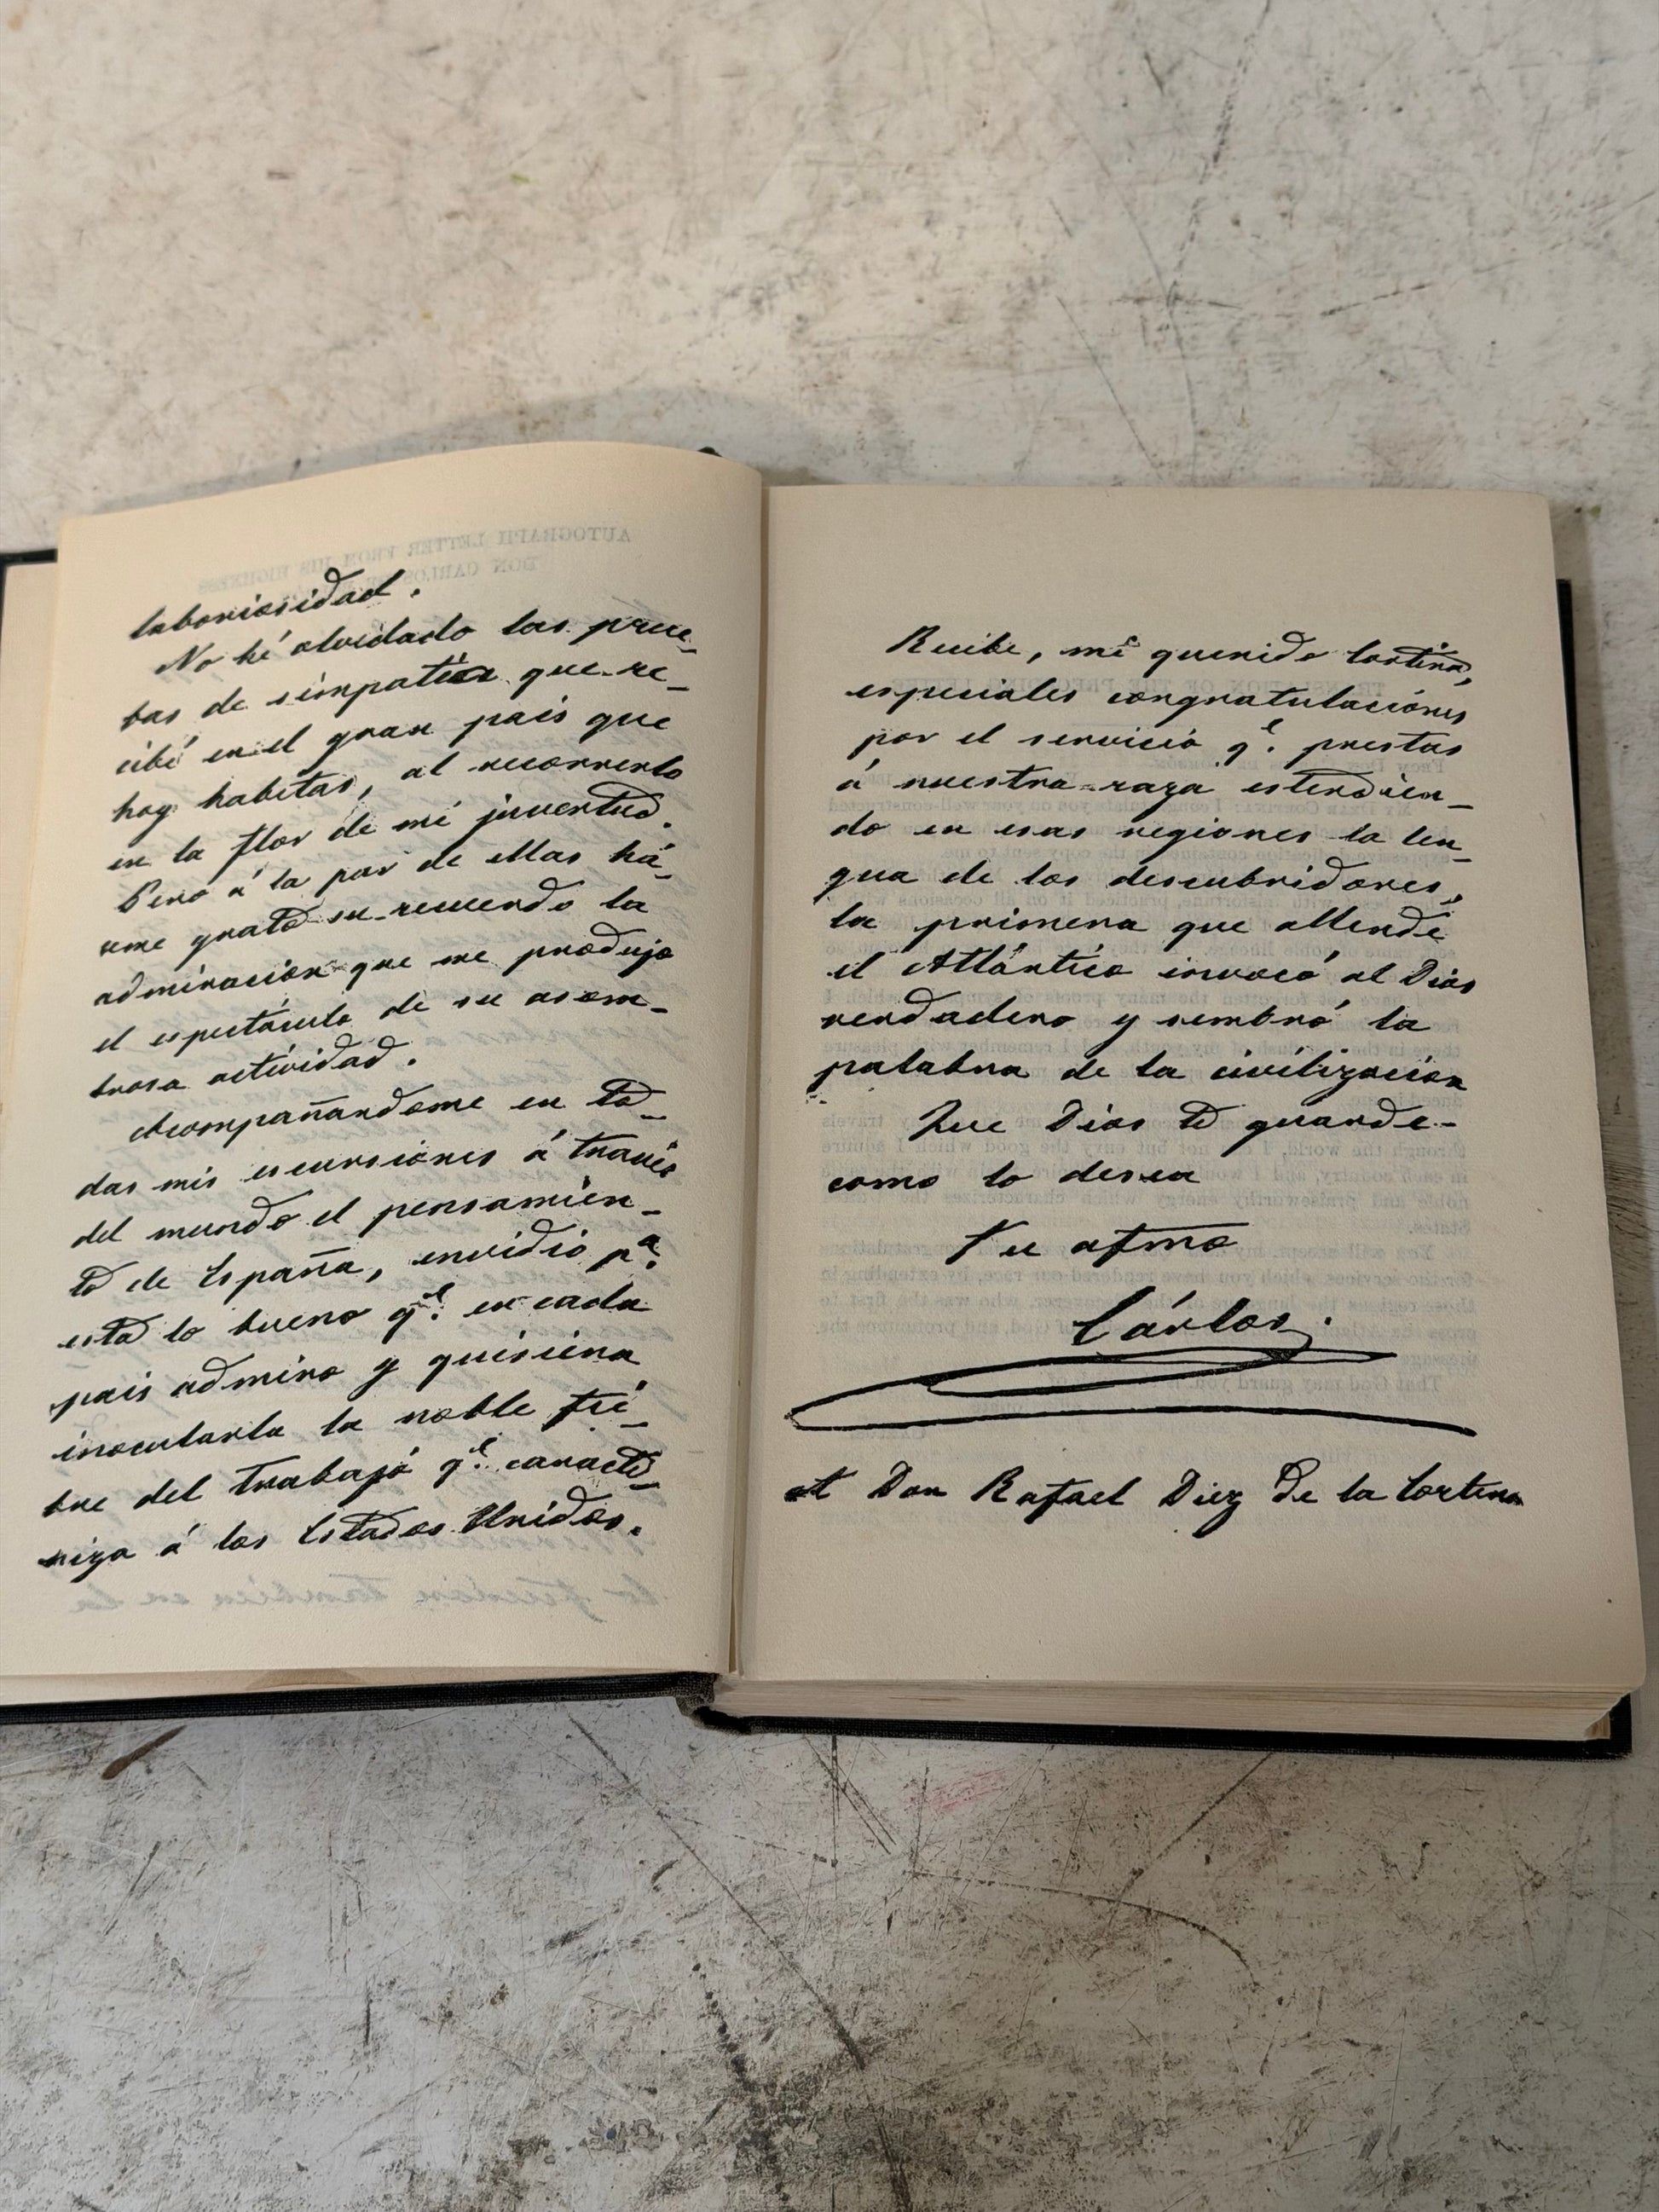 laboriosidad.
No hé olvidado las prue_
bas de simpatía que re_
cibí en el gran pais que
hoy habitas, al recorrerlo
en la flor de mi juventud.
Pero á la par de ellas há_
ceme grato su recuerdo la
admiracion que me produjo
el espectáculo de su asom_
brosa actividad.
Acompañandome en to_
das mis escursiones á través
del mundo el pensamien_
to de España, envidio pª.
esta lo bueno qe. en cada
pais admiro y quisiera
inocularla la noble fie_
bre del trabajo qe. caracte_
riza á los Estados Unidos.
Recibe, mi querido Cortina,
especiales congratulaciónes
por el servicio qe. prestas
á nuestra raza estendien_
do en esas regiones la len_
gua de los descubridores,
la primera que allende
el Atlántico invocó al Dios
verdadero y sembró la
palabra de la civilizacion
Que Dios te guarde
como lo desea
Tu afmo
Cárlos.
A Don Rafael Diez de la Cortina
AUTOGRAPH LETTER FROM HIS HIGHNESS
DON CARLOS